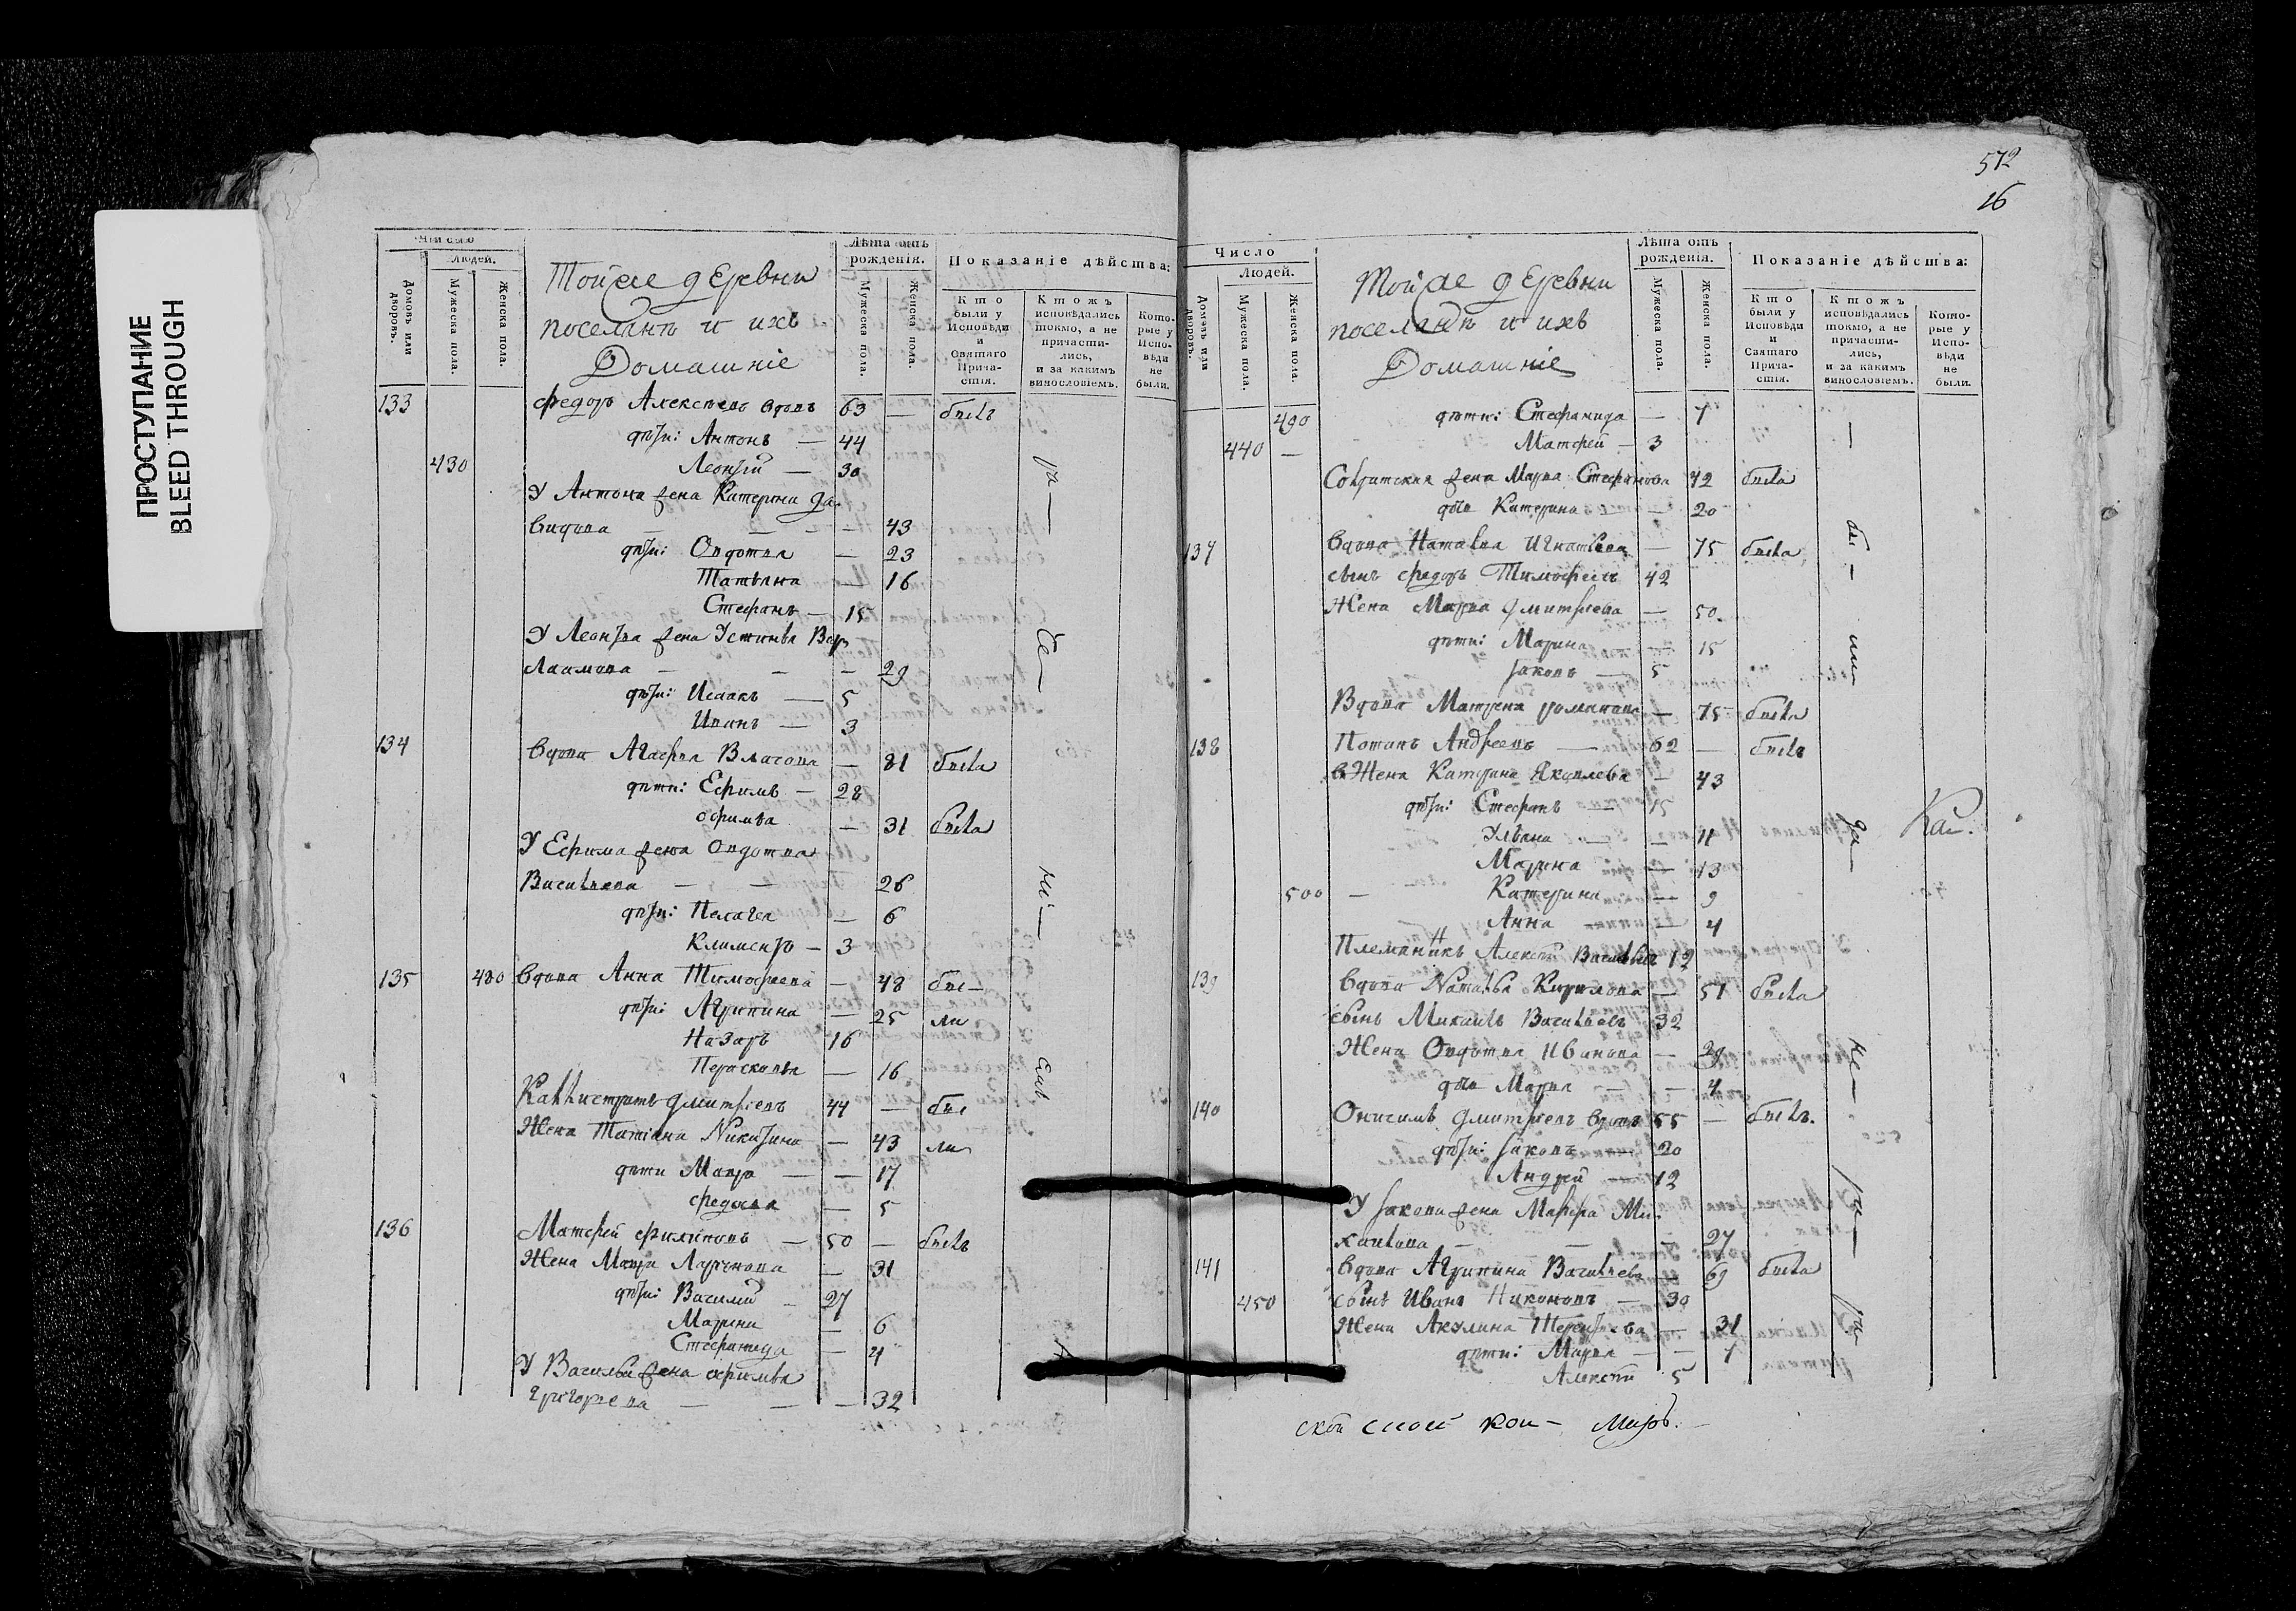 ПРОСТУПАНИЕ
BLEED THROUGH
572
16
Число
Людей.
Домовъ или дворовъ.
Мужеска пола.
Женска пола.
Тойже деревни
поселянъ и ихъ
Домашніе
Лѣта отъ рожденія.
Мужеска пола.
Женска пола.
Показаніе дѣйства:
Кто были у Исповѣди и Святаго Причастія.
Ктожъ исповѣдались токмо, а не причастились, и за какимъ винословіемъ.
Которые у Исповѣди не были.
133 Федоръ Алексѣевъ вдовъ 63 — былъ
дѣти: Антонъ — 44
430 Леонтій — 30
У Антона жена Катерина Да-
видова — — — 43
дѣти: Овдотья — 23
Татьяна — 16
Стефанъ — 15
У Леонтья жена Устинья Вар-
лаамова — — — 29
дѣти: Исаакъ — 5
Иванъ — 3
134 вдова Агафья Власова — 81 была
дѣти: Ефимъ — 28
Офимья — 31 была
У Ефима жена Овдотья
Васильева — — 26
дѣти: Пелагея — 6
Климентъ — 3
135 480 вдова Анна Тимофеева — 48 бы-
дѣти: Агрипина — 25 ли
Назаръ 16
Парасковья — 16
Каллистратъ Дмитріевъ 44 — бы
Жена Татіана Никитина — 43 ли
дѣти Мавра — — 17
Федосья — 5
136 Матфей Филиповъ — 50 — былъ
Жена Мавра Ларіонова — 31
дѣти: Василій — 27
Марина — 6
Стефанида — 4
У Василья жена Офимья
Григорьева — — — 32
Число
Людей.
Домовъ или дворовъ.
Мужеска пола.
Женска пола.
Тойже деревни
поселянъ и ихъ
Домашніе
Лѣта отъ рожденія.
Мужеска пола.
Женска пола.
Показаніе дѣйства:
Кто были у Исповѣди и Святаго Причастія.
Ктожъ исповѣдались токмо, а не причастились, и за какимъ винословіемъ.
Которые у Исповѣди не были.
490 дѣти: Стефанида — 7
440 — Матфей — 3
Солдатская жена Марья Стефанова 42 была
дочь Катерина — 20
137 вдова Наталья Игнатьева — 75 была
сынъ Федоръ Тимофеевъ 42
Жена Марья Дмитріева — 50
дѣти: Марина — 15
Іаковъ — 5
Вдова Матрена Романова — 75 была
138 Потапъ Андреевъ — 62 — былъ
Жена Катерина Яковлева — 43
дѣти: Стефанъ — 15
Ульяна — 11
Марина — 13
500 — Катерина — 9
Анна — 4
Племянникъ Алексѣй Васильевъ 12
139 вдова Наталья Кирилова — 51 была
сынъ Михаилъ Васильевъ 32
Жена Овдотья Иванова — 29
дочь Марья — — 4
140 Онисимъ Дмитріевъ вдовъ 55 — былъ.
дѣти: Іаковъ — 20
Андрей — 12
У Іакова жена Марфа Ми-
хайлова — — — 27
141 вдова Агрипина Васильева — 69 была
450 сынъ Иванъ Никоновъ — 30
Жена Акулина Терентьева — 31
дѣти: Марья — — 7
Алексѣй 5